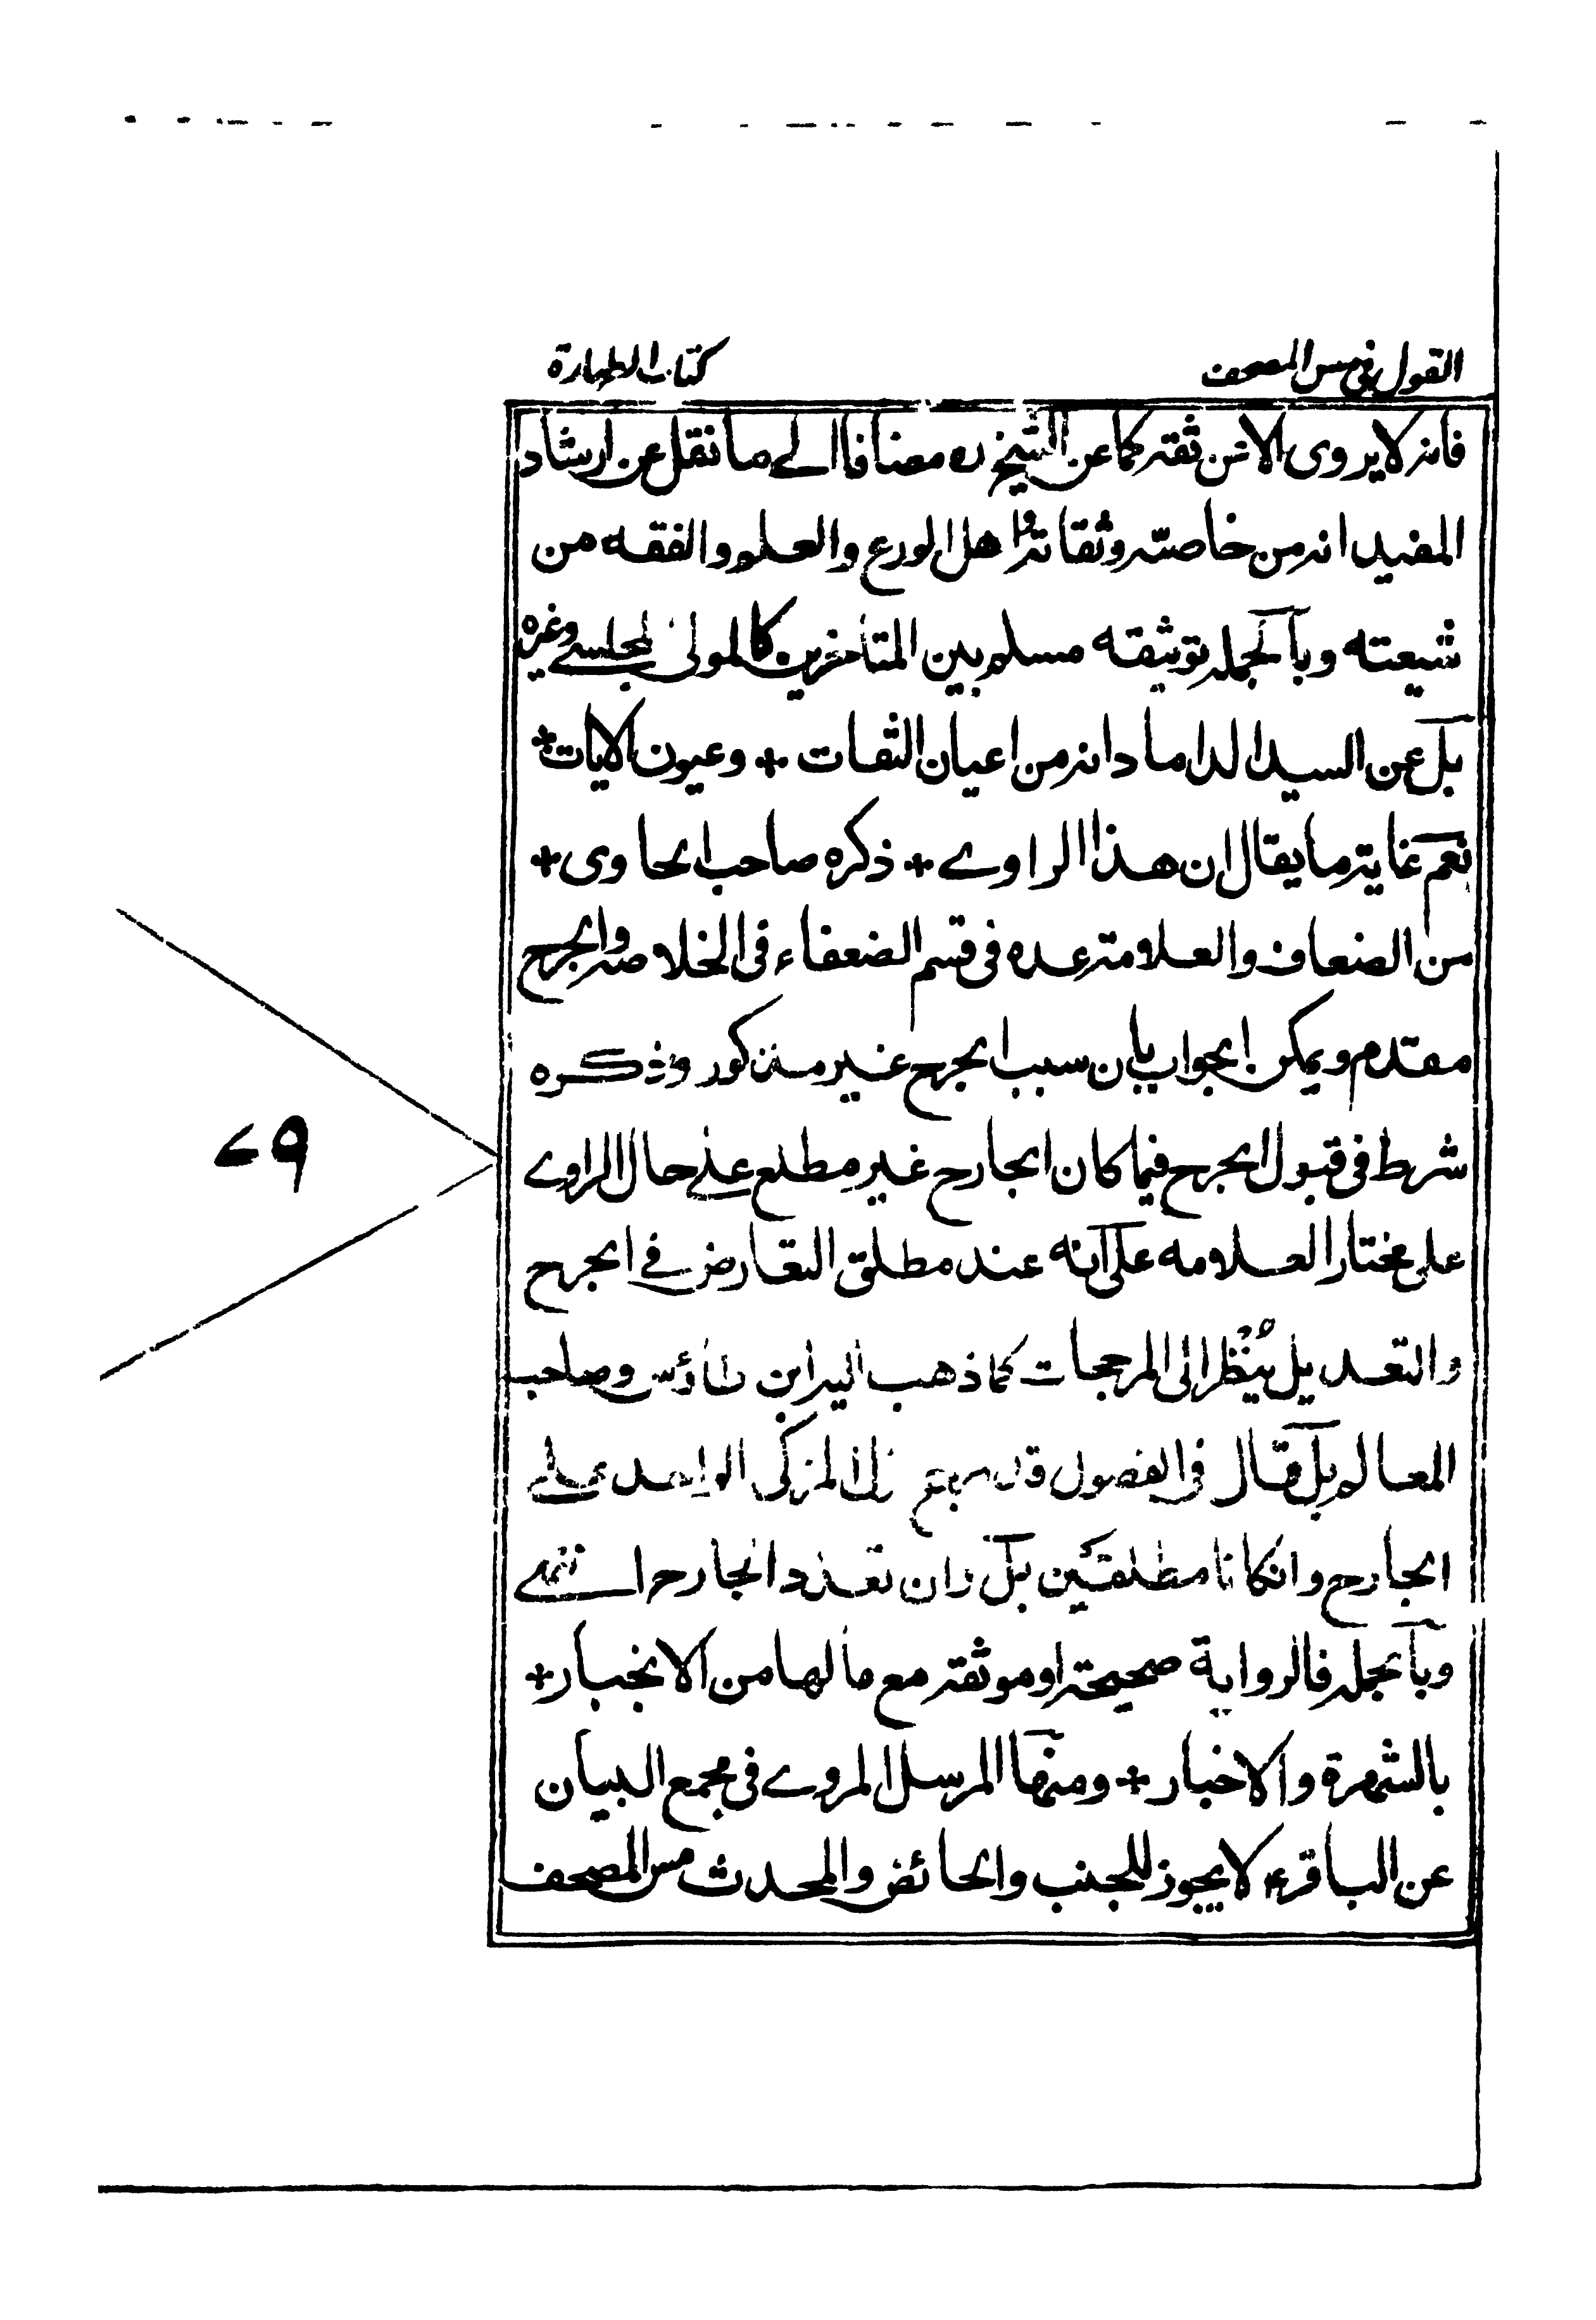 القول فی مس المصحف
کتاب الطهارة
فانه لا يروی الا عن ثقة كما عن الشيخ ره مضافا الے ما نقل عن ارشاد
المفيد انه من خاصته وثقاته واهل الورع والعلم والفقه من
شيعته وبالجمله توثيقه مسلم بين المتأخرين كالمولی المجلسے وغيره
بل عن السيد الداماد انه من اعيان الثقات + وعيون الاٰيات +
نعم غاية ما يقال ان هذا الراوے + ذكره صاحب الحاوی +
من الضعاف والعلامة عده فی قسم الضعفاء فی الخلاصة والجرح
مقدم ويمكن الجواب بان سبب الجرح غير مذكور وذكره
شرط فی قبول الجرح فيما كان الجارح غير مطلع علے حال الراوے
علی مختار العلامه علی انه عند مطلق التعارض فے الجرح
والتعديل يُنْظُر الی المرجحات كما ذهب اليه ابن طاؤس وصاحب
المعالم بل قال فی الفصول قد يرجح المزكی الواحد علے
الجارح وانكانا مطلقين بل وان تعدد الجارح انتهے
وبالجمله فالرواية صحيحة او موثقة مع ما لها من الانجبار +
بالشهرة والاخبار + ومنها المرسل المروے فی مجمع البيان
عن الباقر ع لا يجوز للجنب والحائض والمحدث مس المصحف
٧٩